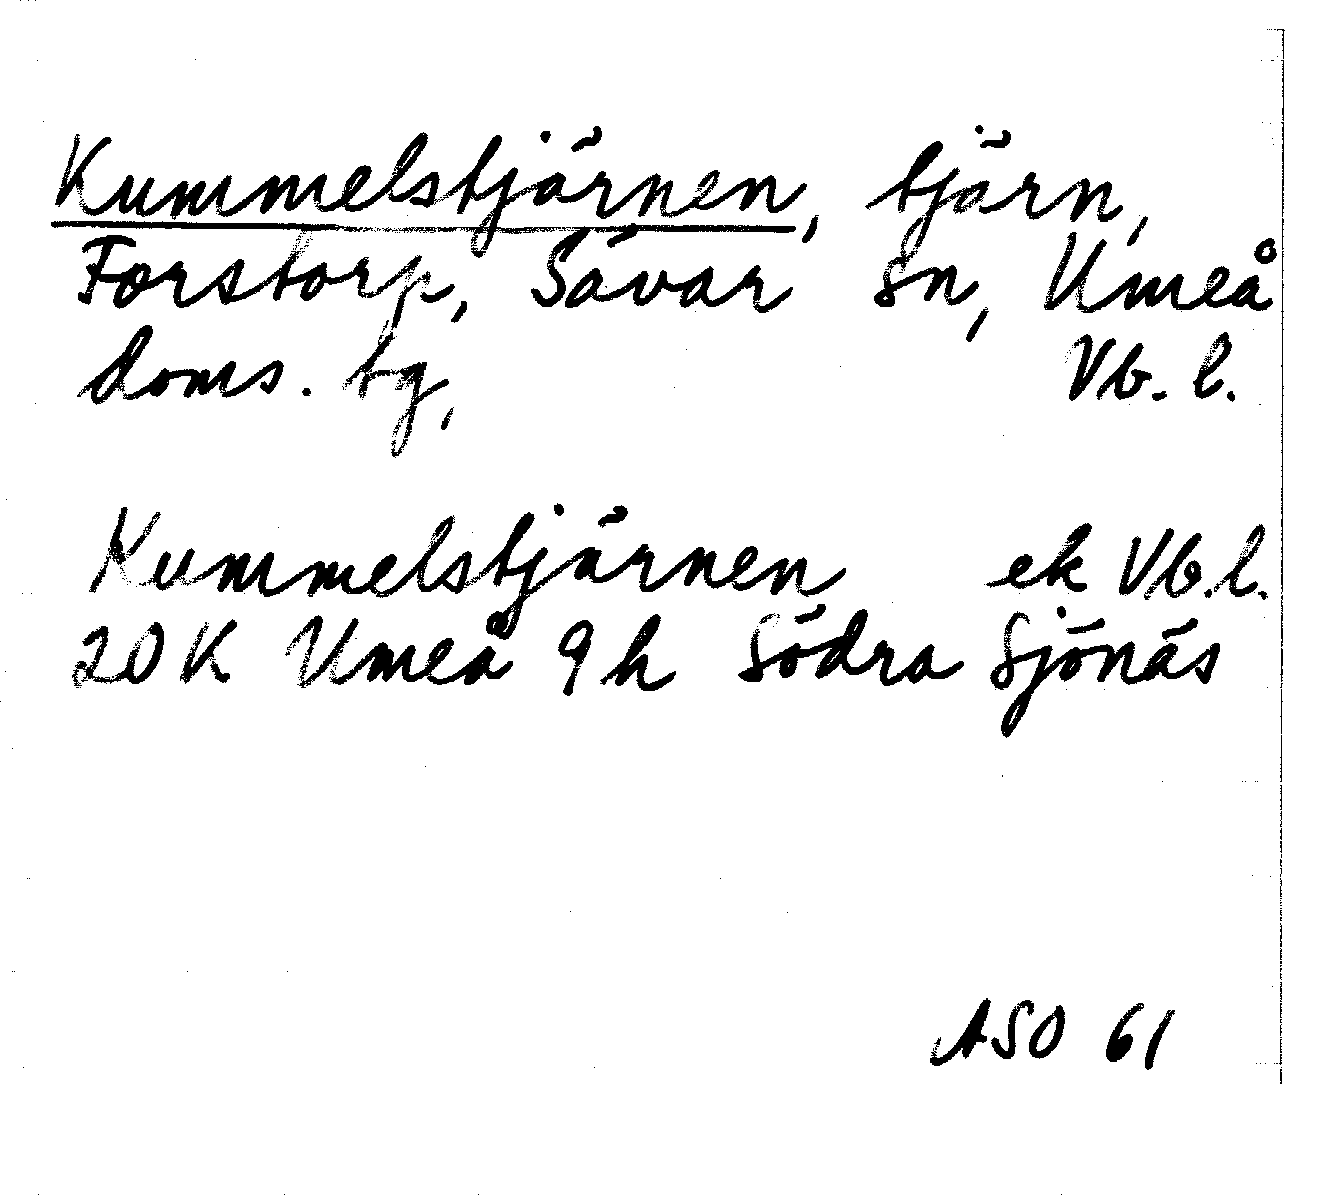 Kummelstjärnen, tjärn,
Forstorp, Sävar sn, Umeå
doms. tg,                    Vb. l.
Kummelstjärnen ek Vb.l.
20K Umeå 9h Södra Sjönäs
ASO 61